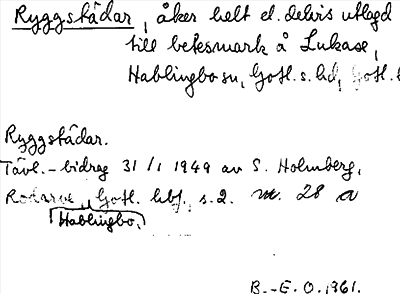 Ryggstädar, åker helt el. delvis utlagd
till betesmark å Lukase,
Hablingbo sn, Gotl. s. hd, Gotl. l
Ryggstädar.
Tävl.-bidrag 31/1 1949 av S. Holmberg,
Rodarve, Gotl. hbf, s. 2. m. 28 a
Hablingbo.
B.-E. O. 1961.